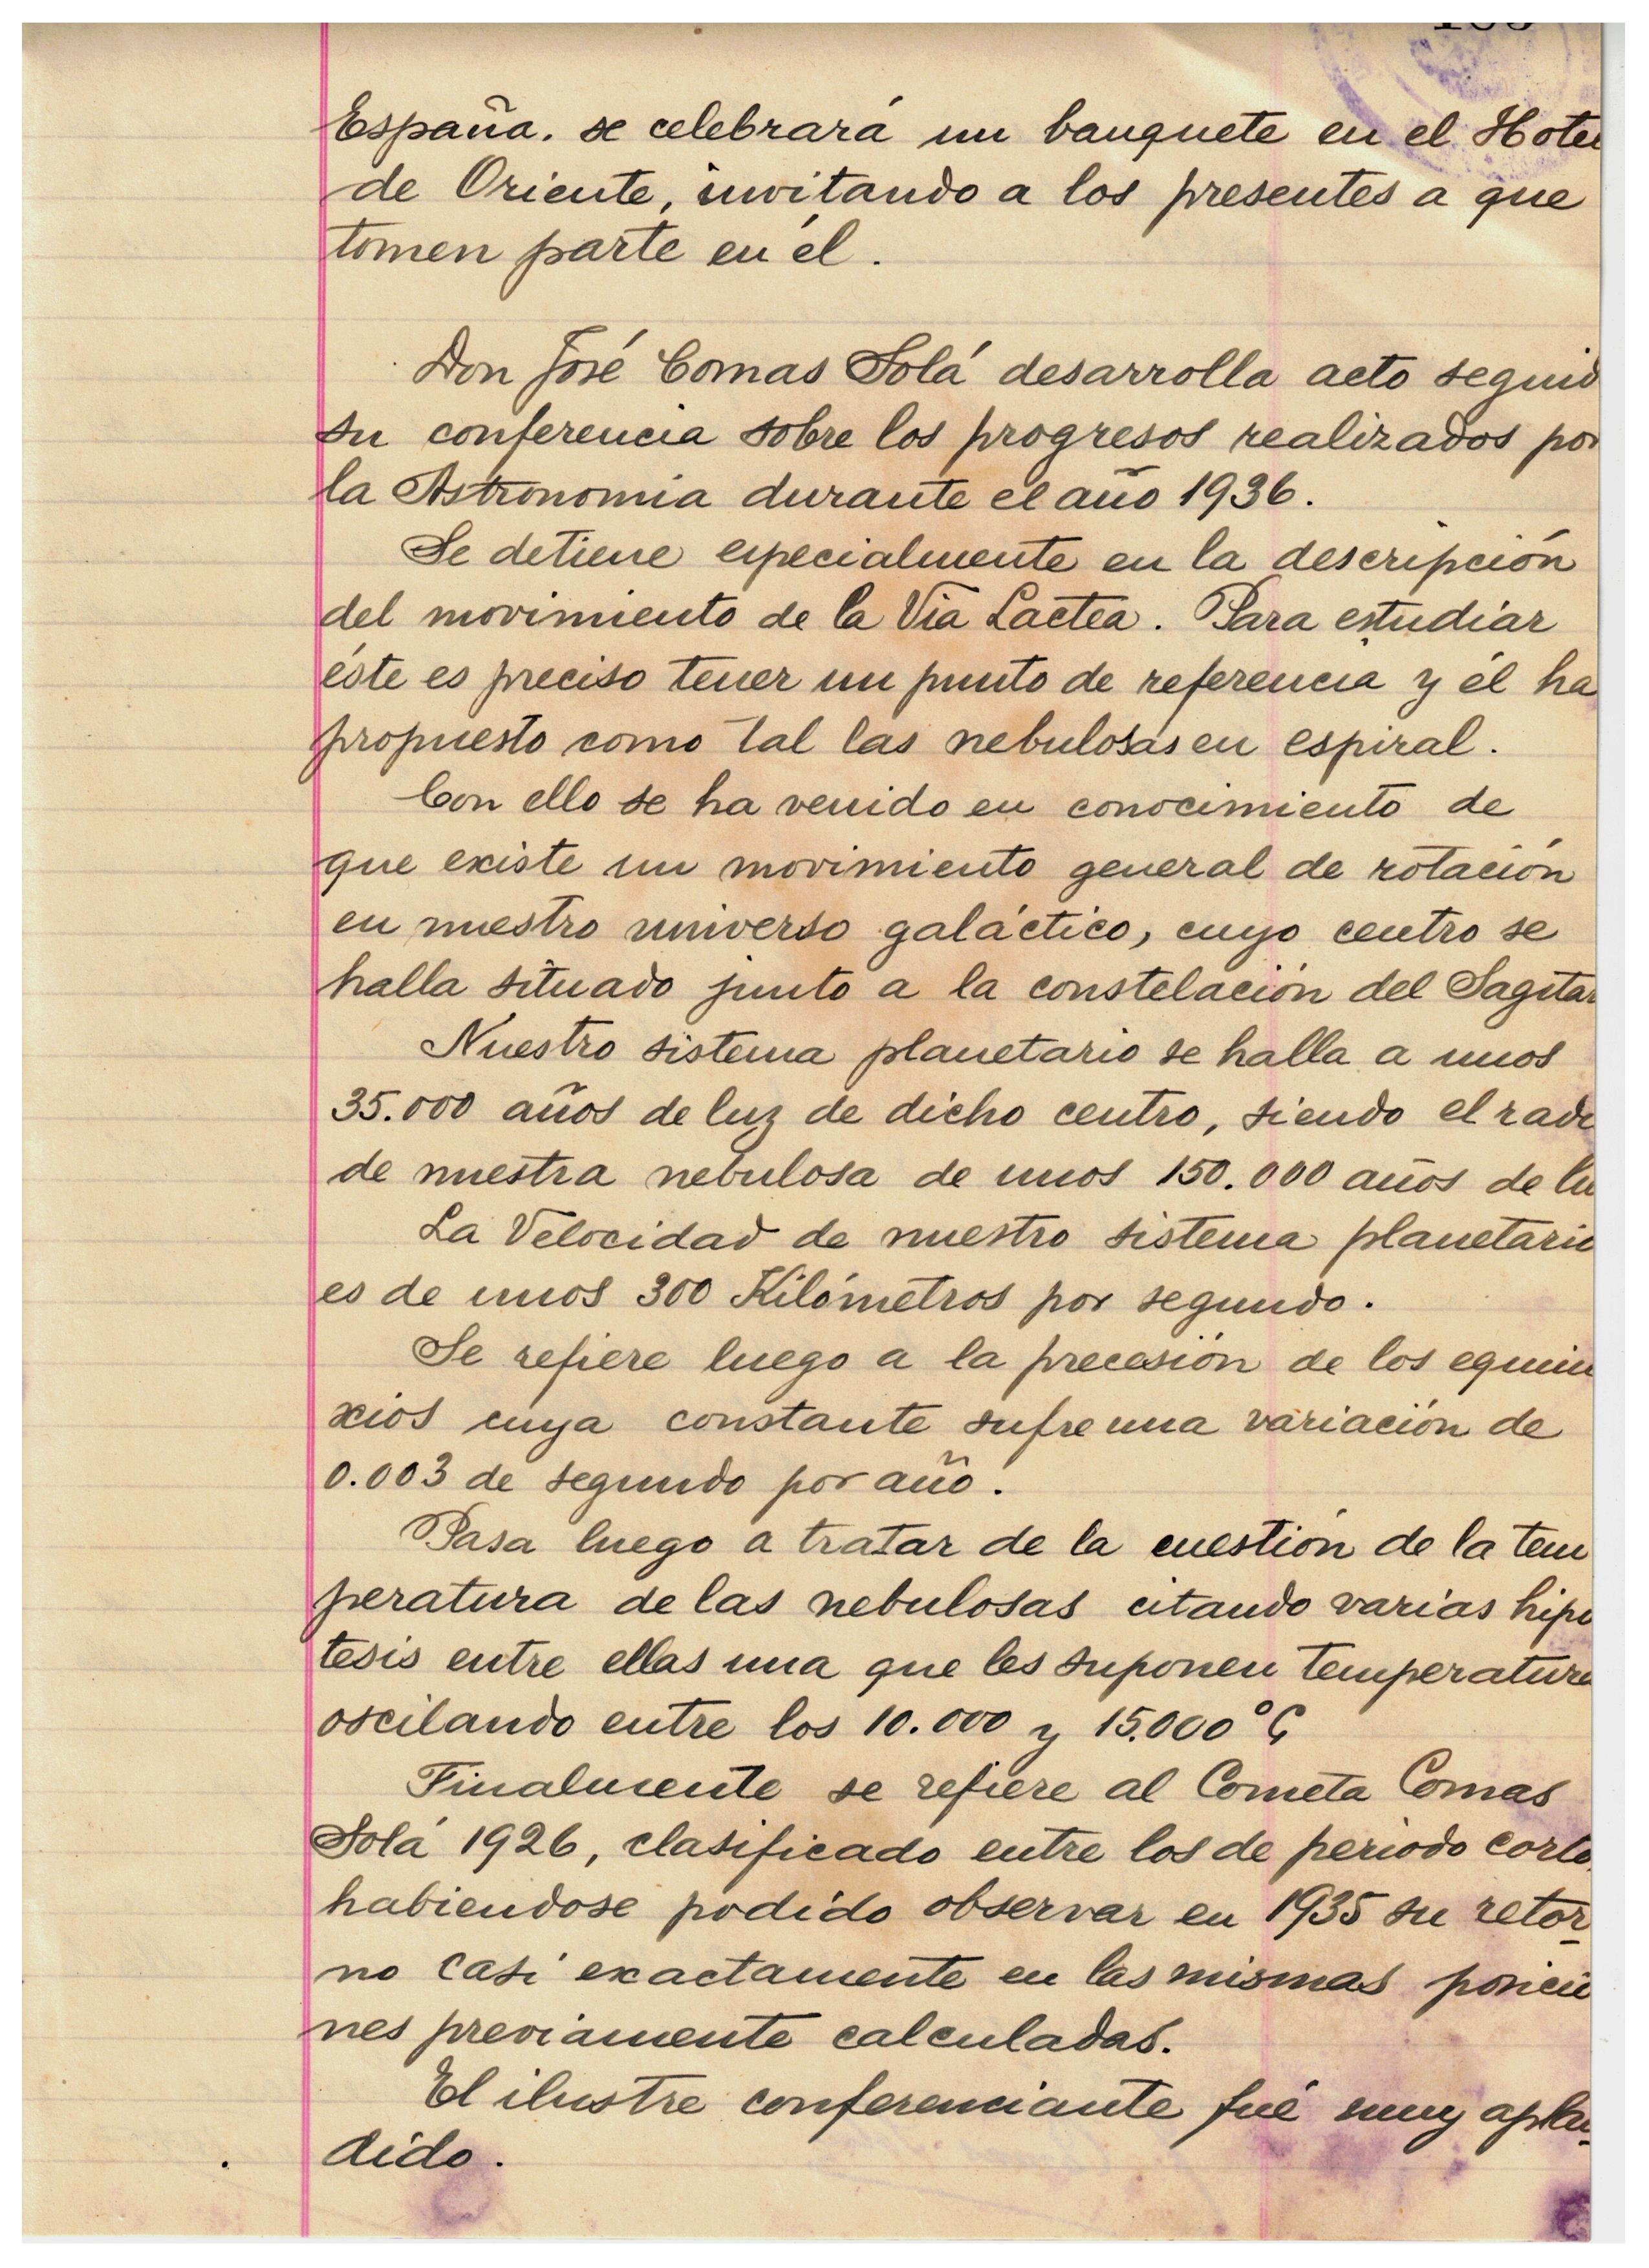 España. se celebrará un banquete en el Hotel
de Oriente, invitando a los presentes a que
tomen parte en él.
Don José Comas Solá desarrolla acto seguid
su conferencia sobre los progresos realizados por
la Astronomia durante el año 1936.
Se detiene especialmente en la descripción
del movimiento de la Via Lactea. Para estudiar
éste es preciso tener un punto de referencia y él ha
propuesto como tal las nebulosas en espiral.
Con ello se ha venido en conocimiento de
que existe un movimiento general de rotación
en nuestro universo galáctico, cuyo centro se
halla situado junto a la constelación del Sagitar
Nuestro sistema planetario se halla a unos
35.000 años de luz de dicho centro, siendo el radi
de nuestra nebulosa de unos 150.000 años de lu
La Velocidad de nuestro sistema planetario
es de unos 300 Kilómetros por segundo.
Se refiere luego a la precesión de los equino
xios cuya constante sufre una variación de
0.003 de segundo por año.
Pasa luego a tratar de la cuestión de la tem
peratura de las nebulosas citando varias hipo
tesis entre ellas una que les suponen temperatura
oscilando entre los 10.000 y 15.000 °C
Finalmente se refiere al Cometa Comas
Solá 1926, clasificado entre los de periodo corto
habiendose podido observar en 1935 su retor
no casi exactamente en las mismas posicio
nes previamente calculadas.
El ilustre conferenciante fué muy aplau-
dido.